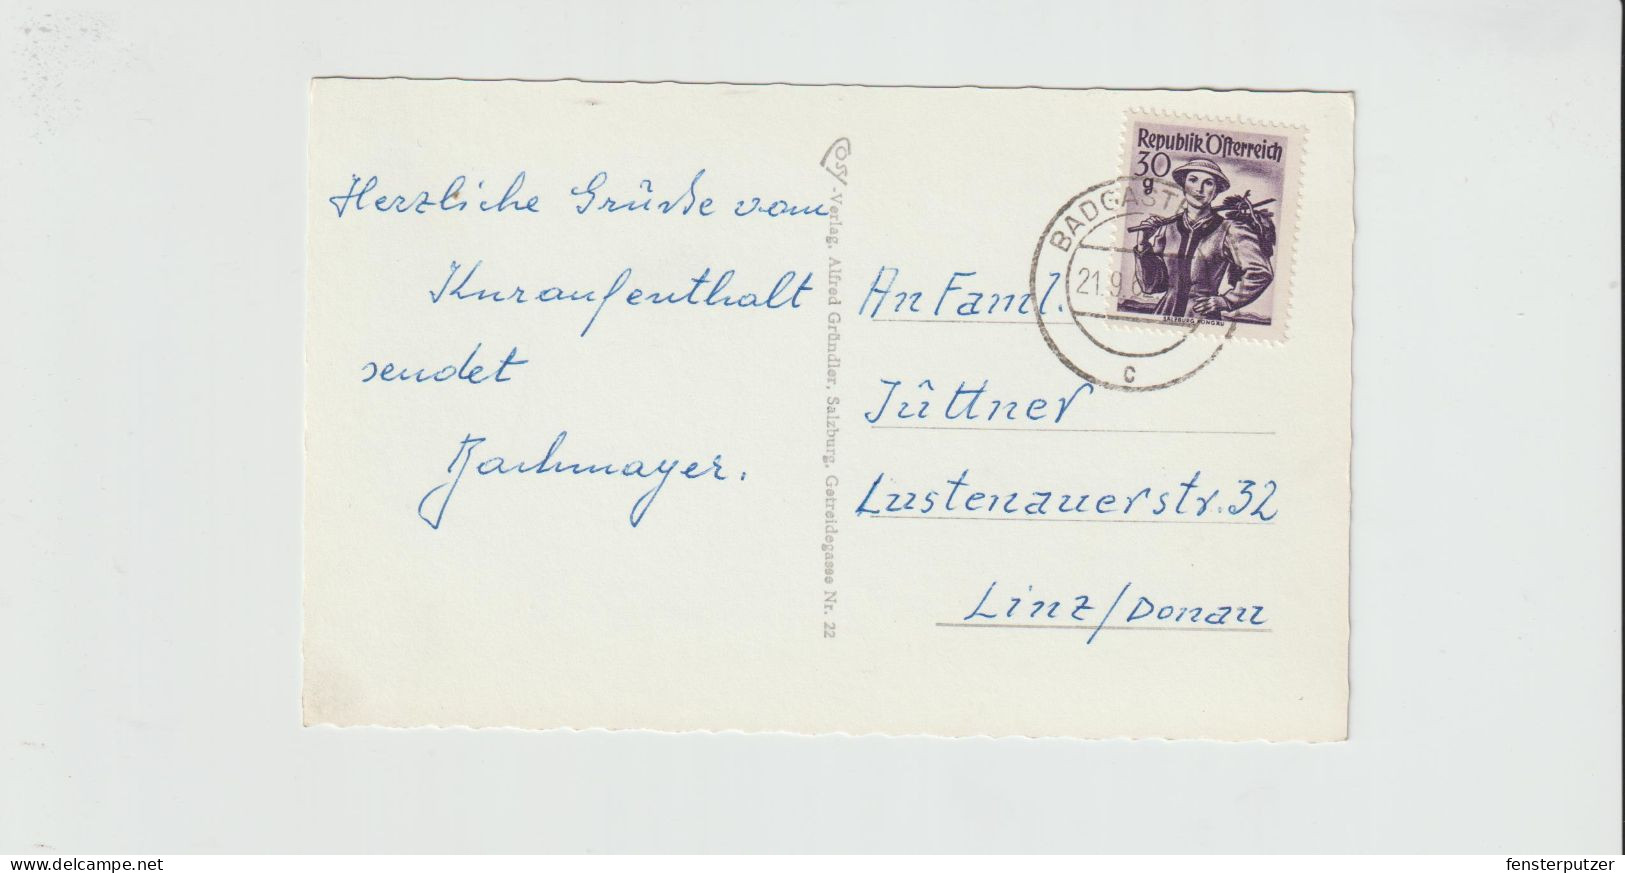 Herzliche Grüße vom
Kuraufenthalt
sendet
Bachmayer.
Cosy-Verlag, Alfred Gründler, Salzburg, Getreidegasse Nr. 22
Republik Österreich
30
g
SALZBURG PONGAU
BADGAST
21.9.6
c
An Faml.
Jüttner
Lustenauerstr. 32
Linz/Donau
www.delcampe.net
fensterputzer